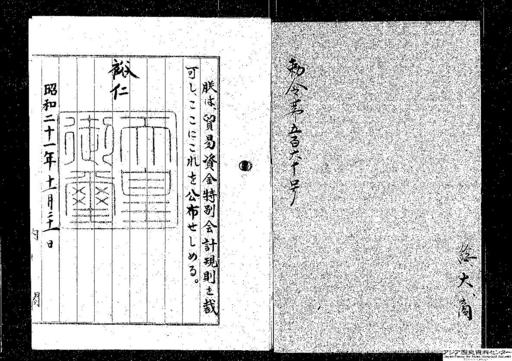 勅令第五百六十号
蔵大商
朕は、貿易資金特別会計規則を裁
可し、ここにこれを公布せしめる。
裕仁
天皇御璽
昭和二十一年十一月二十二日
内
アジア歴史資料センター